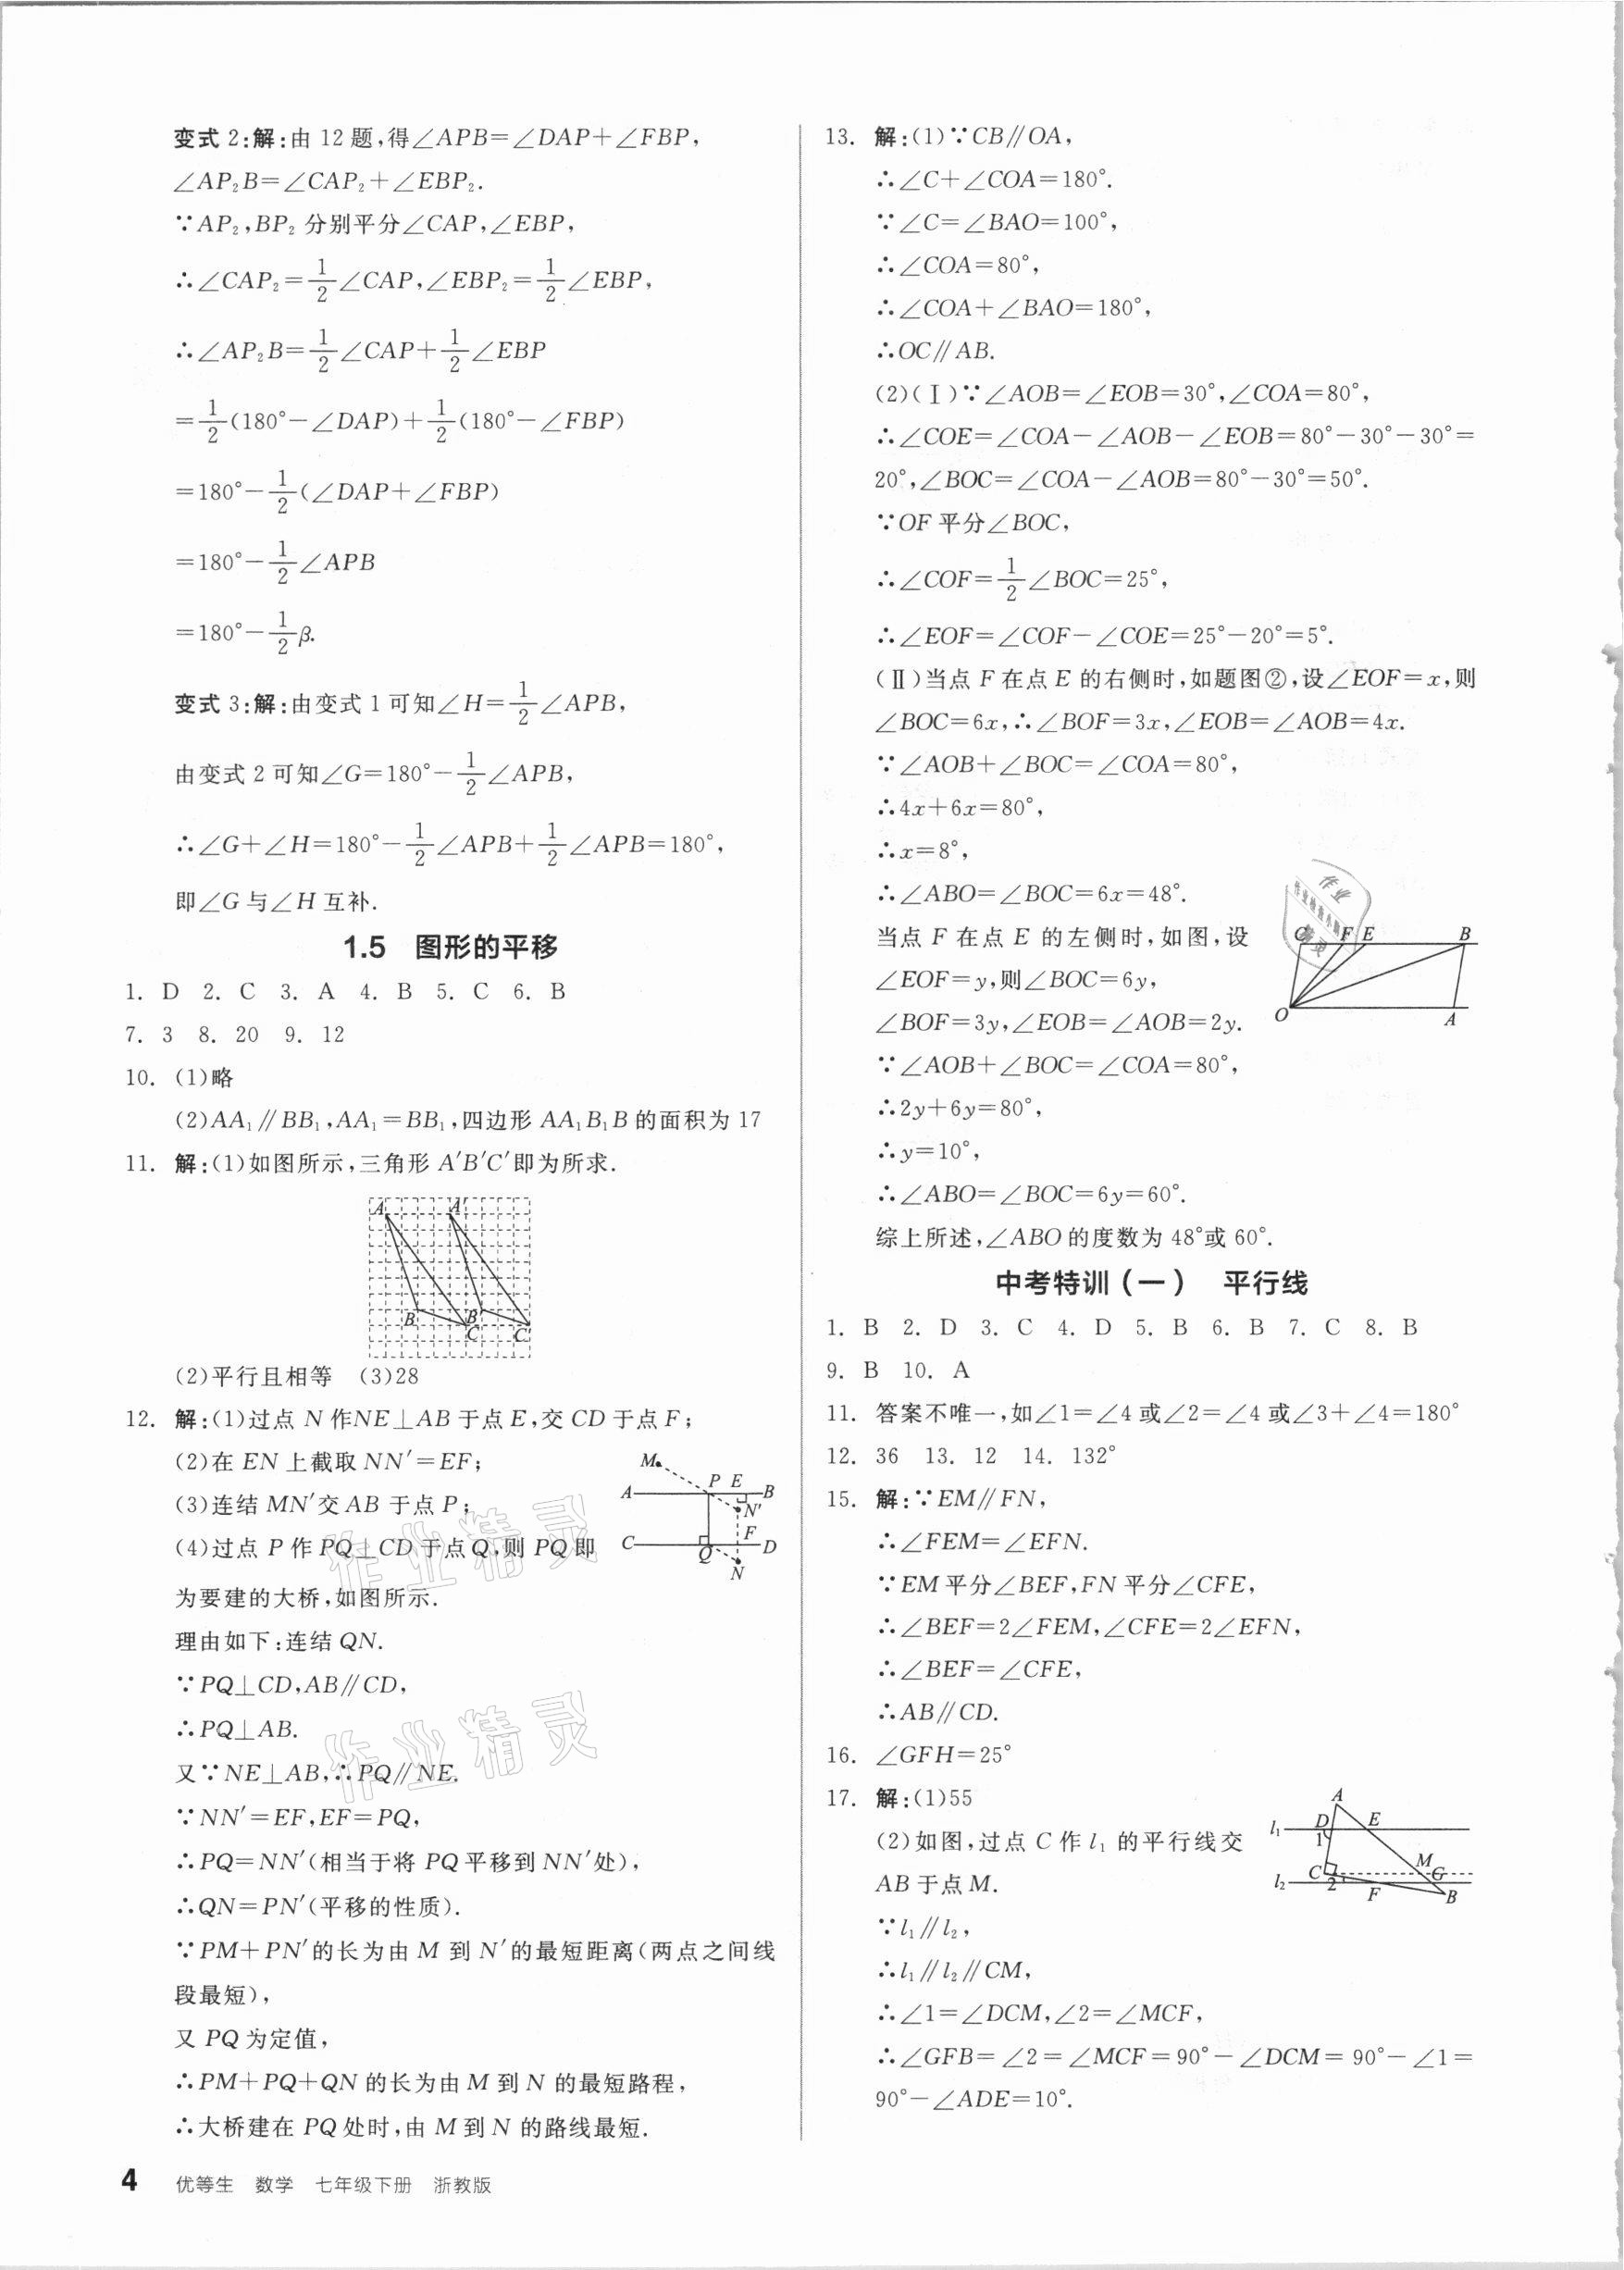 变式2:解:由12题,得∠APB=∠DAP+∠FBP,
∠AP₂B=∠CAP₂+∠EBP₂.
∵AP₂,BP₂分别平分∠CAP,∠EBP,
∴∠CAP₂=1/2∠CAP,∠EBP₂=1/2∠EBP,
∴∠AP₂B=1/2∠CAP+1/2∠EBP
=1/2(180°-∠DAP)+1/2(180°-∠FBP)
=180°-1/2(∠DAP+∠FBP)
=180°-1/2∠APB
=180°-1/2β.
变式3:解:由变式1可知∠H=1/2∠APB,
由变式2可知∠G=180°-1/2∠APB,
∴∠G+∠H=180°-1/2∠APB+1/2∠APB=180°,
即∠G与∠H互补.
1.5 图形的平移
1. D 2. C 3. A 4. B 5. C 6. B
7. 3 8. 20 9. 12
10. (1)略
(2)AA₁∥BB₁,AA₁=BB₁,四边形AA₁B₁B的面积为17
11. 解:(1)如图所示,三角形A′B′C′即为所求.
A A′
B B′
C C′
(2)平行且相等 (3)28
12. 解:(1)过点N作NE⊥AB于点E,交CD于点F;
(2)在EN上截取NN′=EF;
(3)连结MN′交AB于点P;
(4)过点P作PQ⊥CD于点Q,则PQ即
为要建的大桥,如图所示.
M
P E
A B
N′
F
C Q D
N
理由如下:连结QN.
∵PQ⊥CD,AB∥CD,
∴PQ⊥AB.
又∵NE⊥AB,∴PQ∥NE.
∵NN′=EF,EF=PQ,
∴PQ=NN′(相当于将PQ平移到NN′处),
∴QN=PN′(平移的性质).
∵PM+PN′的长为由M到N′的最短距离(两点之间线
段最短),
又PQ为定值,
∴PM+PQ+QN的长为由M到N的最短路程,
∴大桥建在PQ处时,由M到N的路线最短.
作业精灵
作业精灵
4 优等生 数学 七年级下册 浙教版
13. 解:(1)∵CB∥OA,
∴∠C+∠COA=180°.
∵∠C=∠BAO=100°,
∴∠COA=80°,
∴∠COA+∠BAO=180°,
∴OC∥AB.
(2)(Ⅰ)∵∠AOB=∠EOB=30°,∠COA=80°,
∴∠COE=∠COA-∠AOB-∠EOB=80°-30°-30°=
20°,∠BOC=∠COA-∠AOB=80°-30°=50°.
∵OF平分∠BOC,
∴∠COF=1/2∠BOC=25°,
∴∠EOF=∠COF-∠COE=25°-20°=5°.
(Ⅱ)当点F在点E的右侧时,如题图②,设∠EOF=x,则
∠BOC=6x,∴∠BOF=3x,∠EOB=∠AOB=4x.
∵∠AOB+∠BOC=∠COA=80°,
∴4x+6x=80°,
∴x=8°,
∴∠ABO=∠BOC=6x=48°.
当点F在点E的左侧时,如图,设
∠EOF=y,则∠BOC=6y,
∠BOF=3y,∠EOB=∠AOB=2y.
作业
精灵
C F E B
O A
∵∠AOB+∠BOC=∠COA=80°,
∴2y+6y=80°,
∴y=10°,
∴∠ABO=∠BOC=6y=60°.
综上所述,∠ABO的度数为48°或60°.
中考特训(一) 平行线
1. B 2. D 3. C 4. D 5. B 6. B 7. C 8. B
9. B 10. A
11. 答案不唯一,如∠1=∠4或∠2=∠4或∠3+∠4=180°
12. 36 13. 12 14. 132°
15. 解:∵EM∥FN,
∴∠FEM=∠EFN.
∵EM平分∠BEF,FN平分∠CFE,
∴∠BEF=2∠FEM,∠CFE=2∠EFN,
∴∠BEF=∠CFE,
∴AB∥CD.
16. ∠GFH=25°
17. 解:(1)55
(2)如图,过点C作l₁的平行线交
AB于点M.
A
l₁ D E
1
C M G
l₂ 2 F B
∵l₁∥l₂,
∴l₁∥l₂∥CM,
∴∠1=∠DCM,∠2=∠MCF,
∴∠GFB=∠2=∠MCF=90°-∠DCM=90°-∠1=
90°-∠ADE=10°.